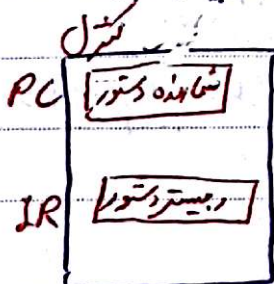 کنترل
PC شمارنده دستور
IR رجیستر دستور